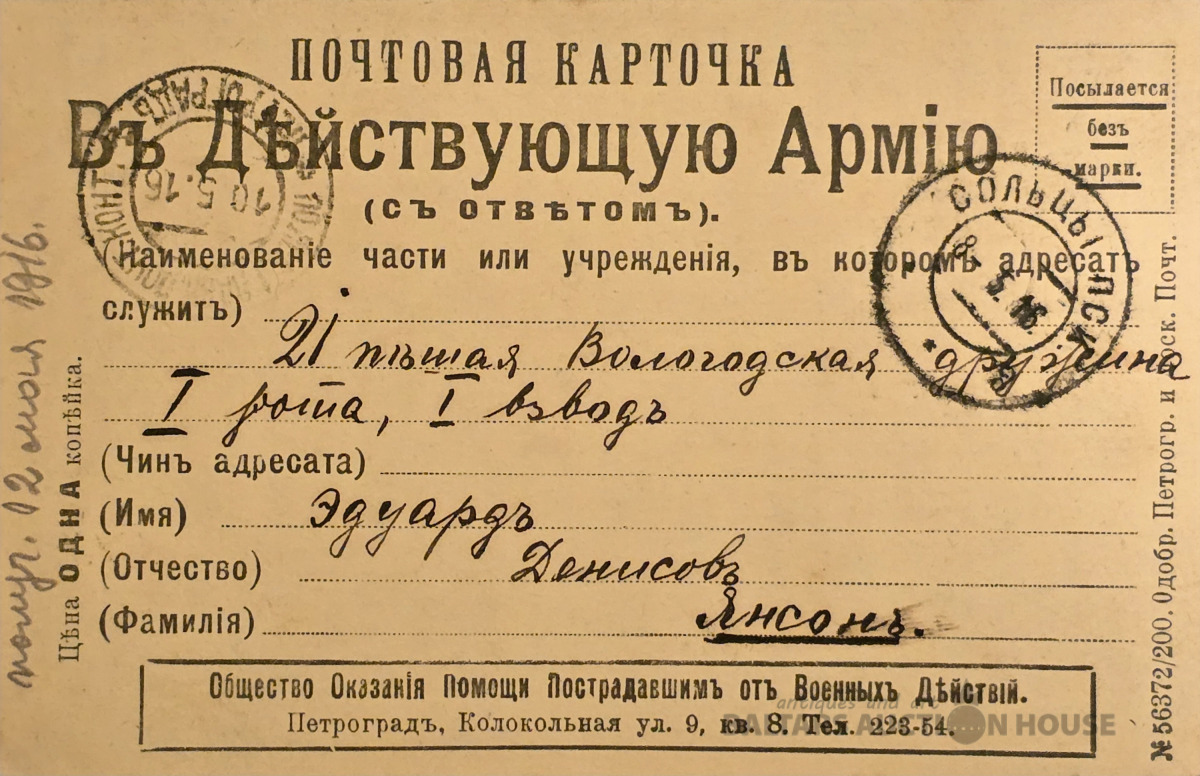 ПОЧТОВАЯ КАРТОЧКА
Въ Дѣйствующую Армію
(СЪ ОТВѢТОМЪ).
Посылается
безъ
марки.
(Наименованіе части или учрежденія, въ которомъ адресатъ
служитъ)
21 пѣшая Вологодская дружина
I рота, I взводъ
(Чинъ адресата)
(Имя) Эдуардъ
(Отчество) Денисовъ
(Фамилія) Янсонъ.
Общество Оказанія Помощи Пострадавшимъ отъ Военныхъ Дѣйствій.
Петроградъ, Колокольная ул. 9, кв. 8. Тел. 223-54.
Цѣна ОДНА копѣйка.
получ. 12 мая 1916.
№ 56372/200. Одобр. Петрогр. и Почт.
ПЕТРОГРАДЪ
10.5.16
СОЛЬЦЫ ПСК.
8.5.16
antiques and art
BALTARS AUCTION HOUSE